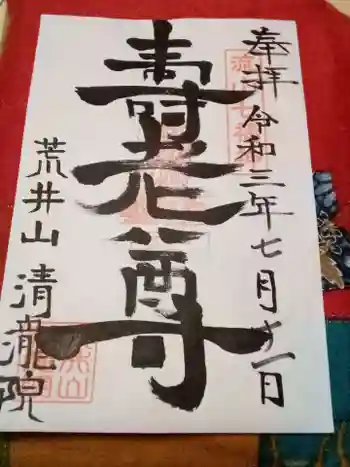 奉拝 令和三年七月十一日
寿老尊
荒井山 清瀧院